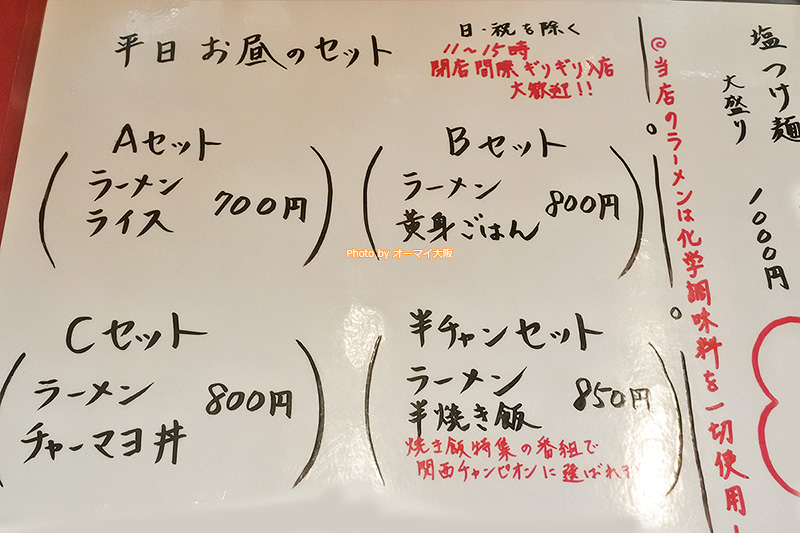 平日 お昼のセット
日・祝を除く
11〜15時
閉店間際ギリギリ入店
大歓迎!!
Aセット
ラーメン
ライス
700円
Bセット
ラーメン
黄身ごはん
800円
Photo by オーマイ大阪
Cセット
ラーメン
チャーマヨ丼
800円
半チャンセット
ラーメン
半焼き飯
850円
焼き飯特集の番組で
関西チャンピオンに選ばれ
◎当店のラーメンは化学調味料を一切使用
塩つけ麺
大盛り
1000円